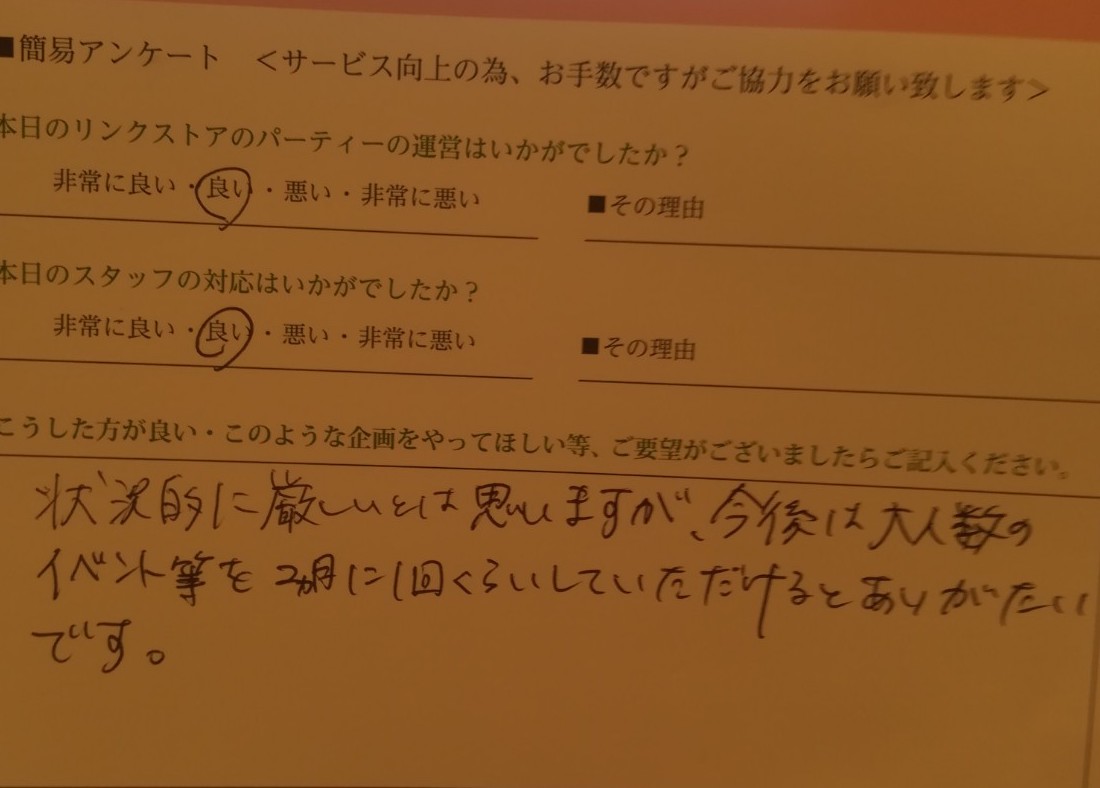 ■簡易アンケート <サービス向上の為、お手数ですがご協力をお願い致します>
本日のリンクストアのパーティーの運営はいかがでしたか?
非常に良い・良い・悪い・非常に悪い ■その理由
本日のスタッフの対応はいかがでしたか?
非常に良い・良い・悪い・非常に悪い ■その理由
こうした方が良い・このような企画をやってほしい等、ご要望がございましたらご記入ください。
状況的に厳しいとは思いますが、今後は大人数の
イベント等を2ヵ月に1回くらいしていただけるとありがたい
です。